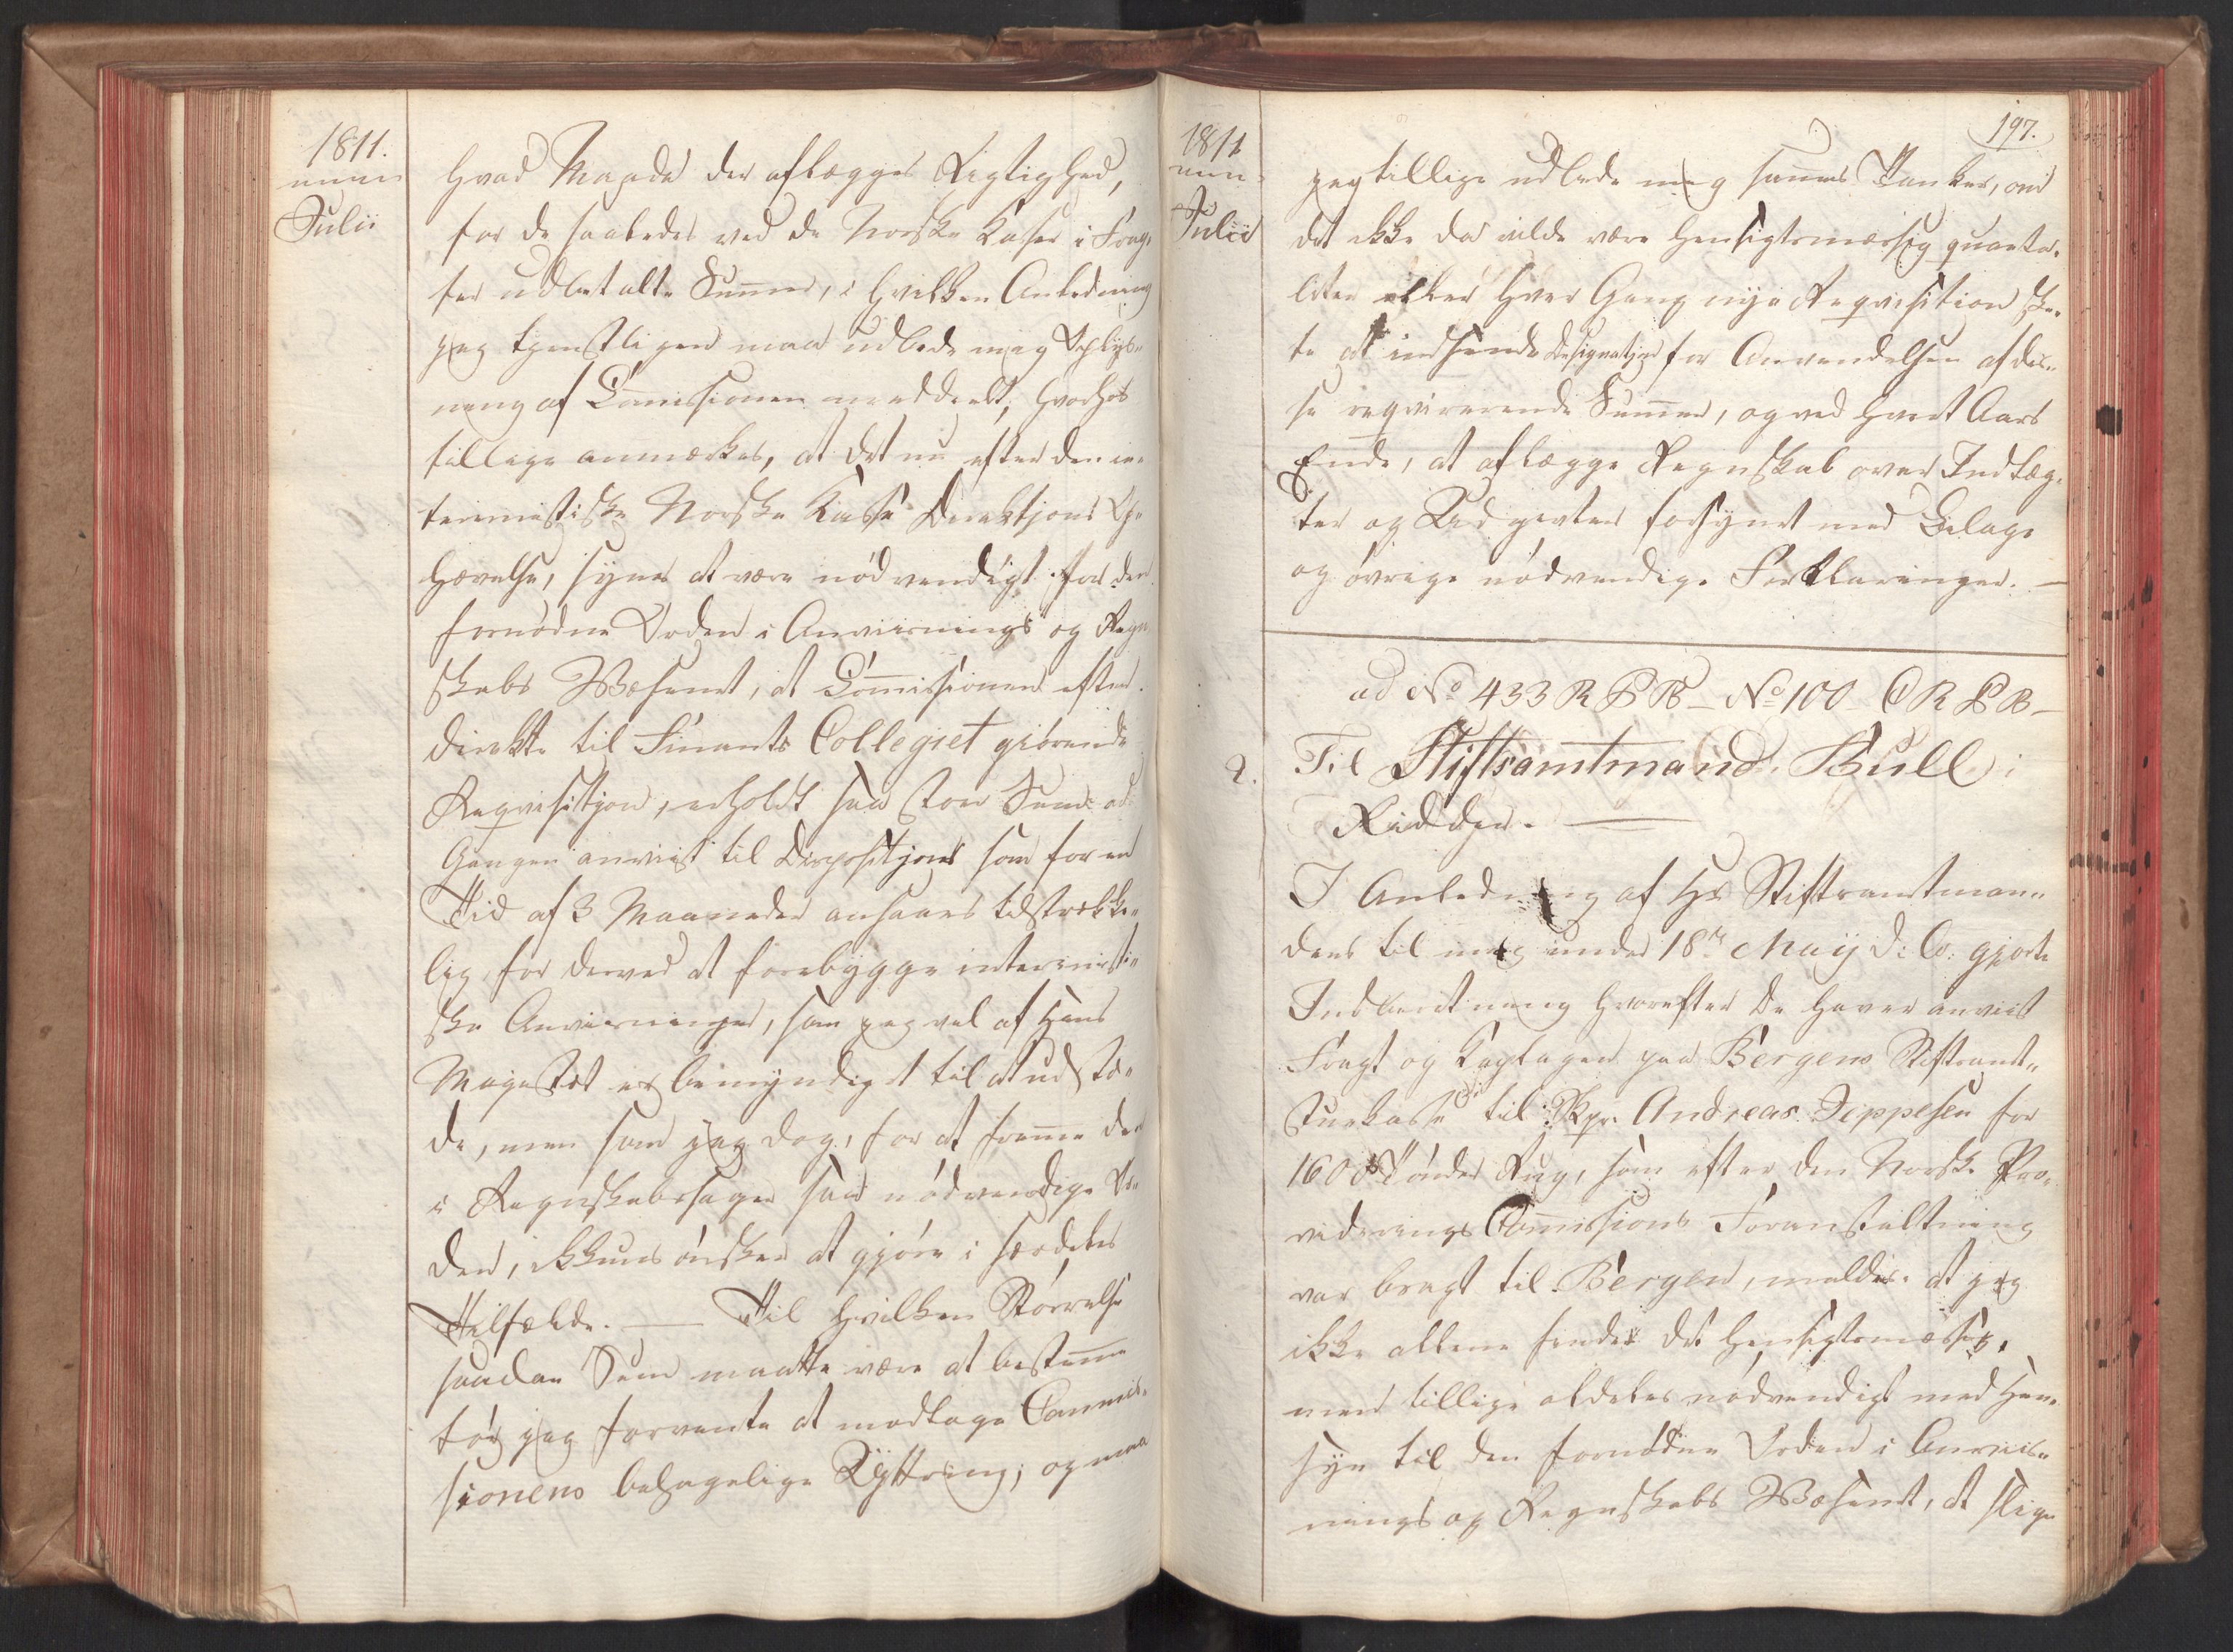 1811.
Julii
hvad Maade der aflægges Rigtighed,
for de saaledes ved de Norske Kasser i Frag-
ter udbetalte Summer, i hvilken Anledning
jeg tjenstligen maa udbede mig Oplys-
ning af Commissionen meddeelt; hvorhos
tillige anmærkes, at det nu efter den in-
terimistiske Norske Kasse Direktjons Op-
hævelse, synes at være nødvendigt for den
fornødne Orden i Anviisnings og Regn-
skabs Væsenet, at Commissionen efter
direkte til Finants Collegiet giørende
Reqvisitjon, erholdt saa stor Sum ad
Gangen anviist til Disposition som for en
Tid af 3 Maaneder ansaaes tilstrække-
lig, for derved at forebygge interimisti-
ske Anviisninger, som jeg vel af Hans
Majestæt er bemyndiget til at udstæ-
de, men som jeg dog, for at fremme den
i Regnskabssager saa nødvendige Or-
den, ikkuns ønsker at gjøre i særdeles
Tilfælde. — Til hvilken Størrelse
saadan Sum maatte være at bestemme
tør jeg forvente at modtage Commis-
sionens behagelige Yttring; og maa
1811
Julii
197.
jeg tillige udbede mig sammes Tanker, om
det ikke da vilde være hensigtsmæssig quarta-
liter eller hver Gang nye Reqvisition ske-
te at indsende Designatjon for Anvendelsen af des-
se reqvirerende Summer, og ved hvert Aars
Ende, at aflægge Regnskab over Indtæg-
ter og Udgivter forsynet med Bilage
og øvrige nødvendige Forklaringer. —
ad No 433 R P B – No 100 C R P B –
2.
Til Stiftsamtmand Bull
Ridder. —
I Anledning af Hr Stiftsamtman-
dens til mig under 18de Maij d: A: gjorte
Indberetning hvorefter De haver anviist
Fragt og Kaplagen paa Bergens Stiftsamt-
stuekasse til Skpr. Andreas Jeppesen for
1600 Tønder Rug, som efter den Norske Pro-
viderings Commissions Foranstaltning
var bragt til Bergen, meldes: at jeg
ikke allene finder det hensigtsmæssig,
men tillige aldeles nødvendigt med Hen-
syn til den fornødne Orden i Anviis-
nings og Regnskabs Væsenet, at slige